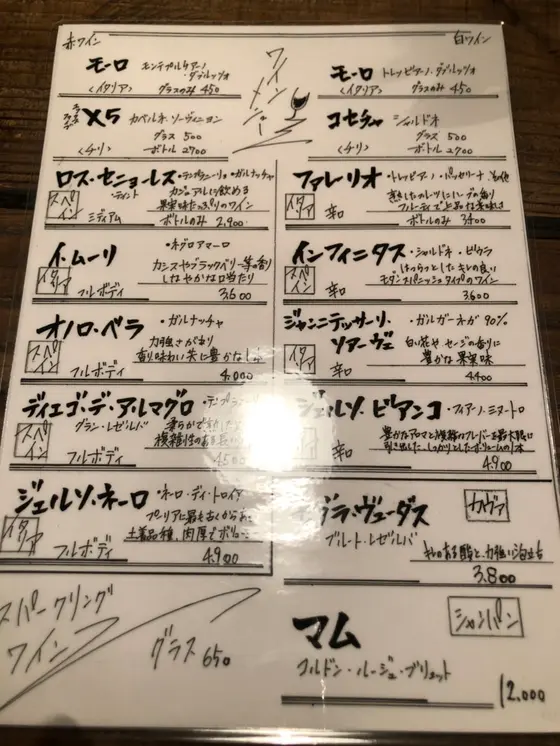 赤ワイン
ワインメニュー
白ワイン
モーロ モンテプルチアーノ・ダブルッツォ
<イタリア> グラスのみ 450
X5 カベルネ・ソーヴィニヨン
グラス 500
<チリ> ボトル 2700
ロス・セニョーレス ・テンプラニーリョ・ガルナッチャ
・ティント
カジュアルに飲める
果実味たっぷりのワイン
スペイン
ミディアム ボトルのみ 2,900
イ・ムーリ ・ネグロアマーロ
カシスやブラックベリー等の香り
しなやかな口当たり
イタリア
フルボディ 3,600
オノロ・ベラ ・ガルナッチャ
力強さがあり
香り味わい共に豊かな
スペイン
フルボディ 4,000
ディエゴ・デ・アルマグロ
グラン・レゼルバ
柔らかで熟した
複雑性のある
スペイン
フルボディ 4500
ジェルソ・ネーロ ・ネーロ・ディ・トロイア
プーリアに最も古くから
土着品種、肉厚でボリュー
イタリア
フルボディ 4,900
スパークリング
ワイン
グラス 650
モーロ トレッビアーノ・ダブルッツォ
<イタリア> グラスのみ 450
コセチャ シャルドネ
グラス 500
<チリ> ボトル 2700
ファレーリオ ・トレッビアーノ・パッセリーナ
熟したフルーツにハーブの香り
フルーティで上品な美味しさ
イタリア
辛口 ボトルのみ 3400
インフィニタス ・シャルドネ・ビウラ
はつらつとしたキレの良い
モダンスパニッシュタイプのワイン
スペイン
辛口 3,600
ジャンニテッサーリ・
ソアーヴェ
・ガルガーネガ 90%
白い花やセージの香りに
豊かな果実味
イタリア
辛口 4,400
ジェルソ・ビアンコ ・フィアーノ・ミヌートロ
豊かなアロマと複雑なフレーバーを最大限に
引き出した、しっかりとしたボリュームの1本
辛口 4,900
グラ・ヴューダス
カヴァ
ブルート・レゼルバ
キレのある酸と、力強い泡立ち
3.800
マム
シャンパン
コルドン・ルージュ・ブリュット
12.000